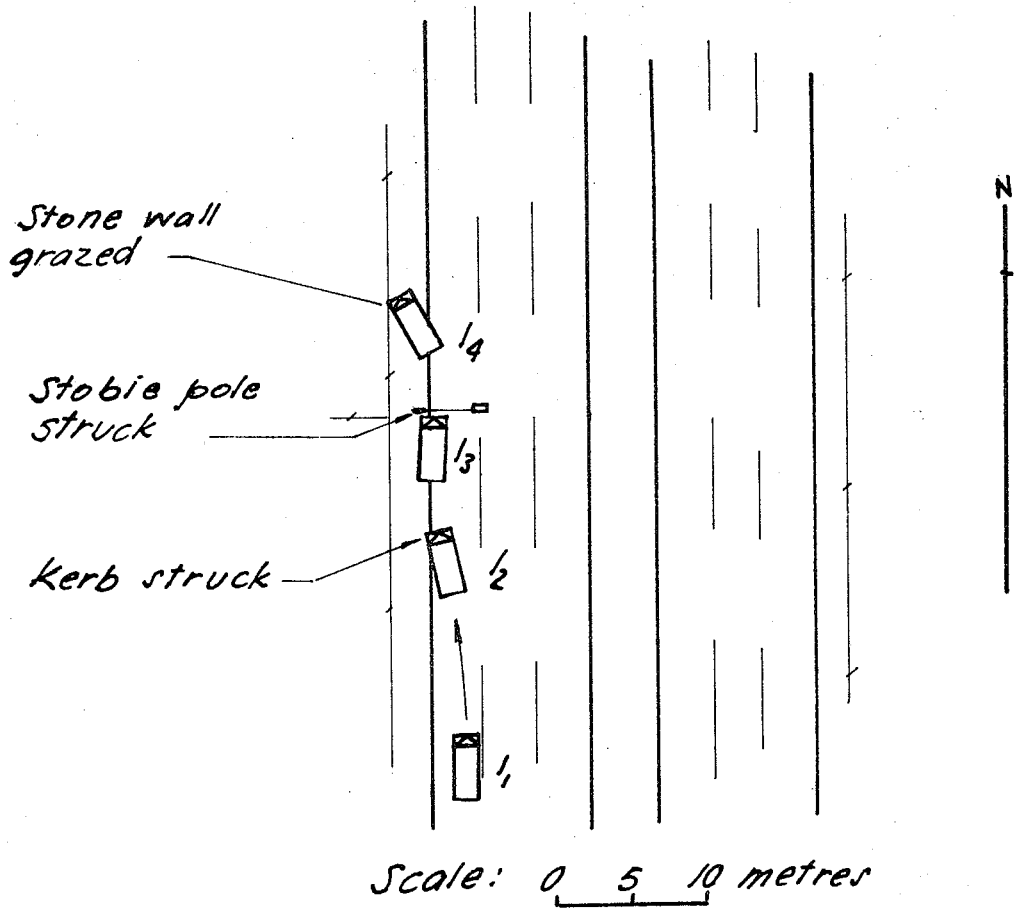 N
Stone wall
grazed
1/4
Stobie pole
struck
1/3
Kerb struck
1/2
1/1
Scale: 0 5 10 metres